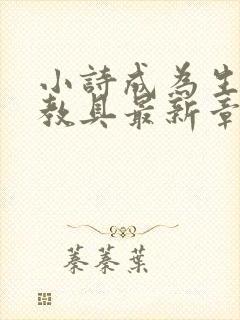 小詩成為生
教具最新章
蓁蓁葉